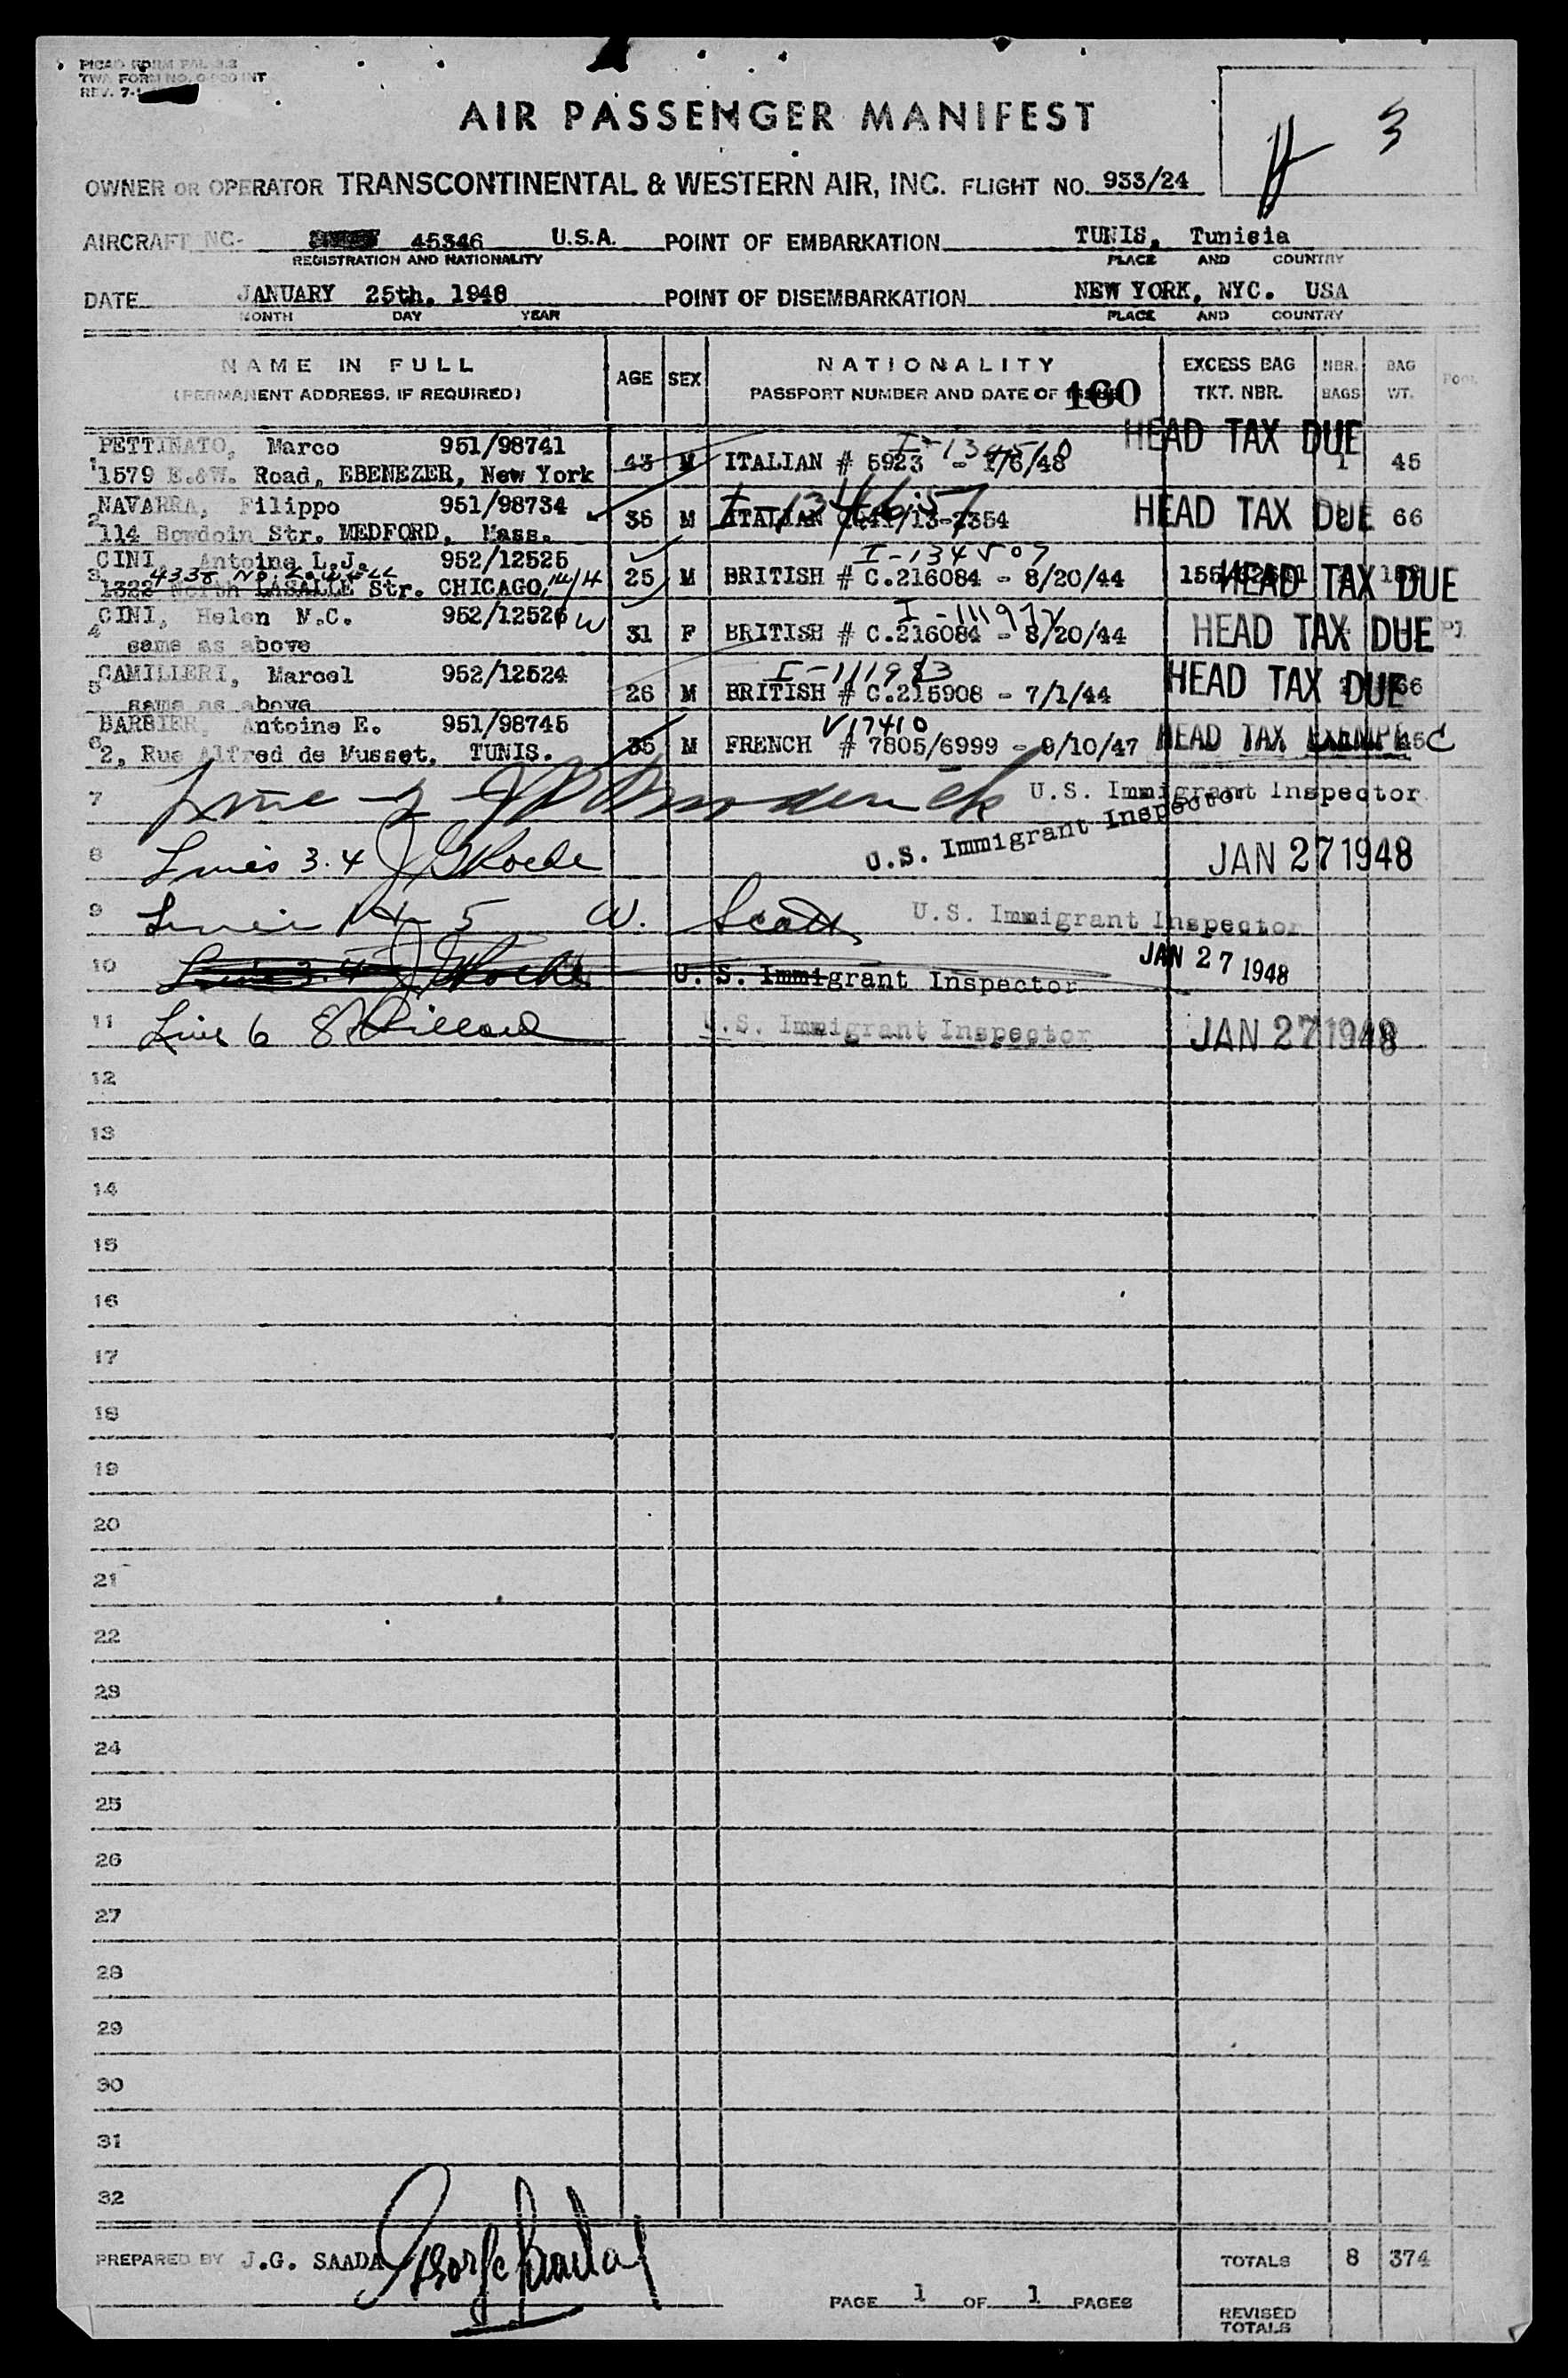 TWA FORM NO. INT
REV. 7-
AIR PASSENGER MANIFEST
3
OWNER OR OPERATOR TRANSCONTINENTAL & WESTERN AIR, INC. FLIGHT NO. 933/24
AIRCRAFT NC- 45346 U.S.A. POINT OF EMBARKATION TUNIS, Tunisia
REGISTRATION AND NATIONALITY PLACE AND COUNTRY
DATE JANUARY 25th, 1948 POINT OF DISEMBARKATION NEW YORK, NYC. USA
MONTH DAY YEAR PLACE AND COUNTRY
NAME IN FULL AGE SEX NATIONALITY EXCESS BAG NBR. BAG
(PERMANENT ADDRESS, IF REQUIRED) PASSPORT NUMBER AND DATE OF 160 TKT. NBR. BAGS WT.
HEAD TAX DUE
PETTINATO, Marco 951/98741 I-134510
1 1579 E.&W. Road, EBENEZER, New York 43 M ITALIAN # 5923 - 1/6/48 1 45
NAVARRA, Filippo 951/98734 HEAD TAX DUE
2 114 Bowdoin Str. MEDFORD, Mass. 36 M ITALIAN 66
CINI, Antoine L.J. 952/12525 I-134507
3 1322 North LASALLE Str. CHICAGO, 25 M BRITISH # C.216084 - 8/20/44 HEAD TAX DUE
CINI, Helen M.C. 952/12526 I-111972
4 same as above 31 F BRITISH # C.216084 - 8/20/44 HEAD TAX DUE
CAMILLERI, Marcel 952/12524 I-111983
5 same as above 26 M BRITISH # C.215908 - 7/1/44 HEAD TAX DUE 66
BARBIER, Antoine E. 951/98745 V17410
6 2, Rue Alfred de Musset, TUNIS. 35 M FRENCH # 7805/6999 - 9/10/47 HEAD TAX EXEMPT
7 U.S. Immigrant Inspector
U.S. Immigrant Inspector
8 Lines 3.4 JAN 27 1948
9 5 W. Scott U.S. Immigrant Inspector
10 U. S. Immigrant Inspector JAN 27 1948
11 Line 6 U.S. Immigrant Inspector JAN 27 1948
12
13
14
15
16
17
18
19
20
21
22
23
24
25
26
27
28
29
30
31
32
PREPARED BY J.G. SAADA TOTALS 8 374
PAGE 1 OF 1 PAGES
REVISED
TOTALS